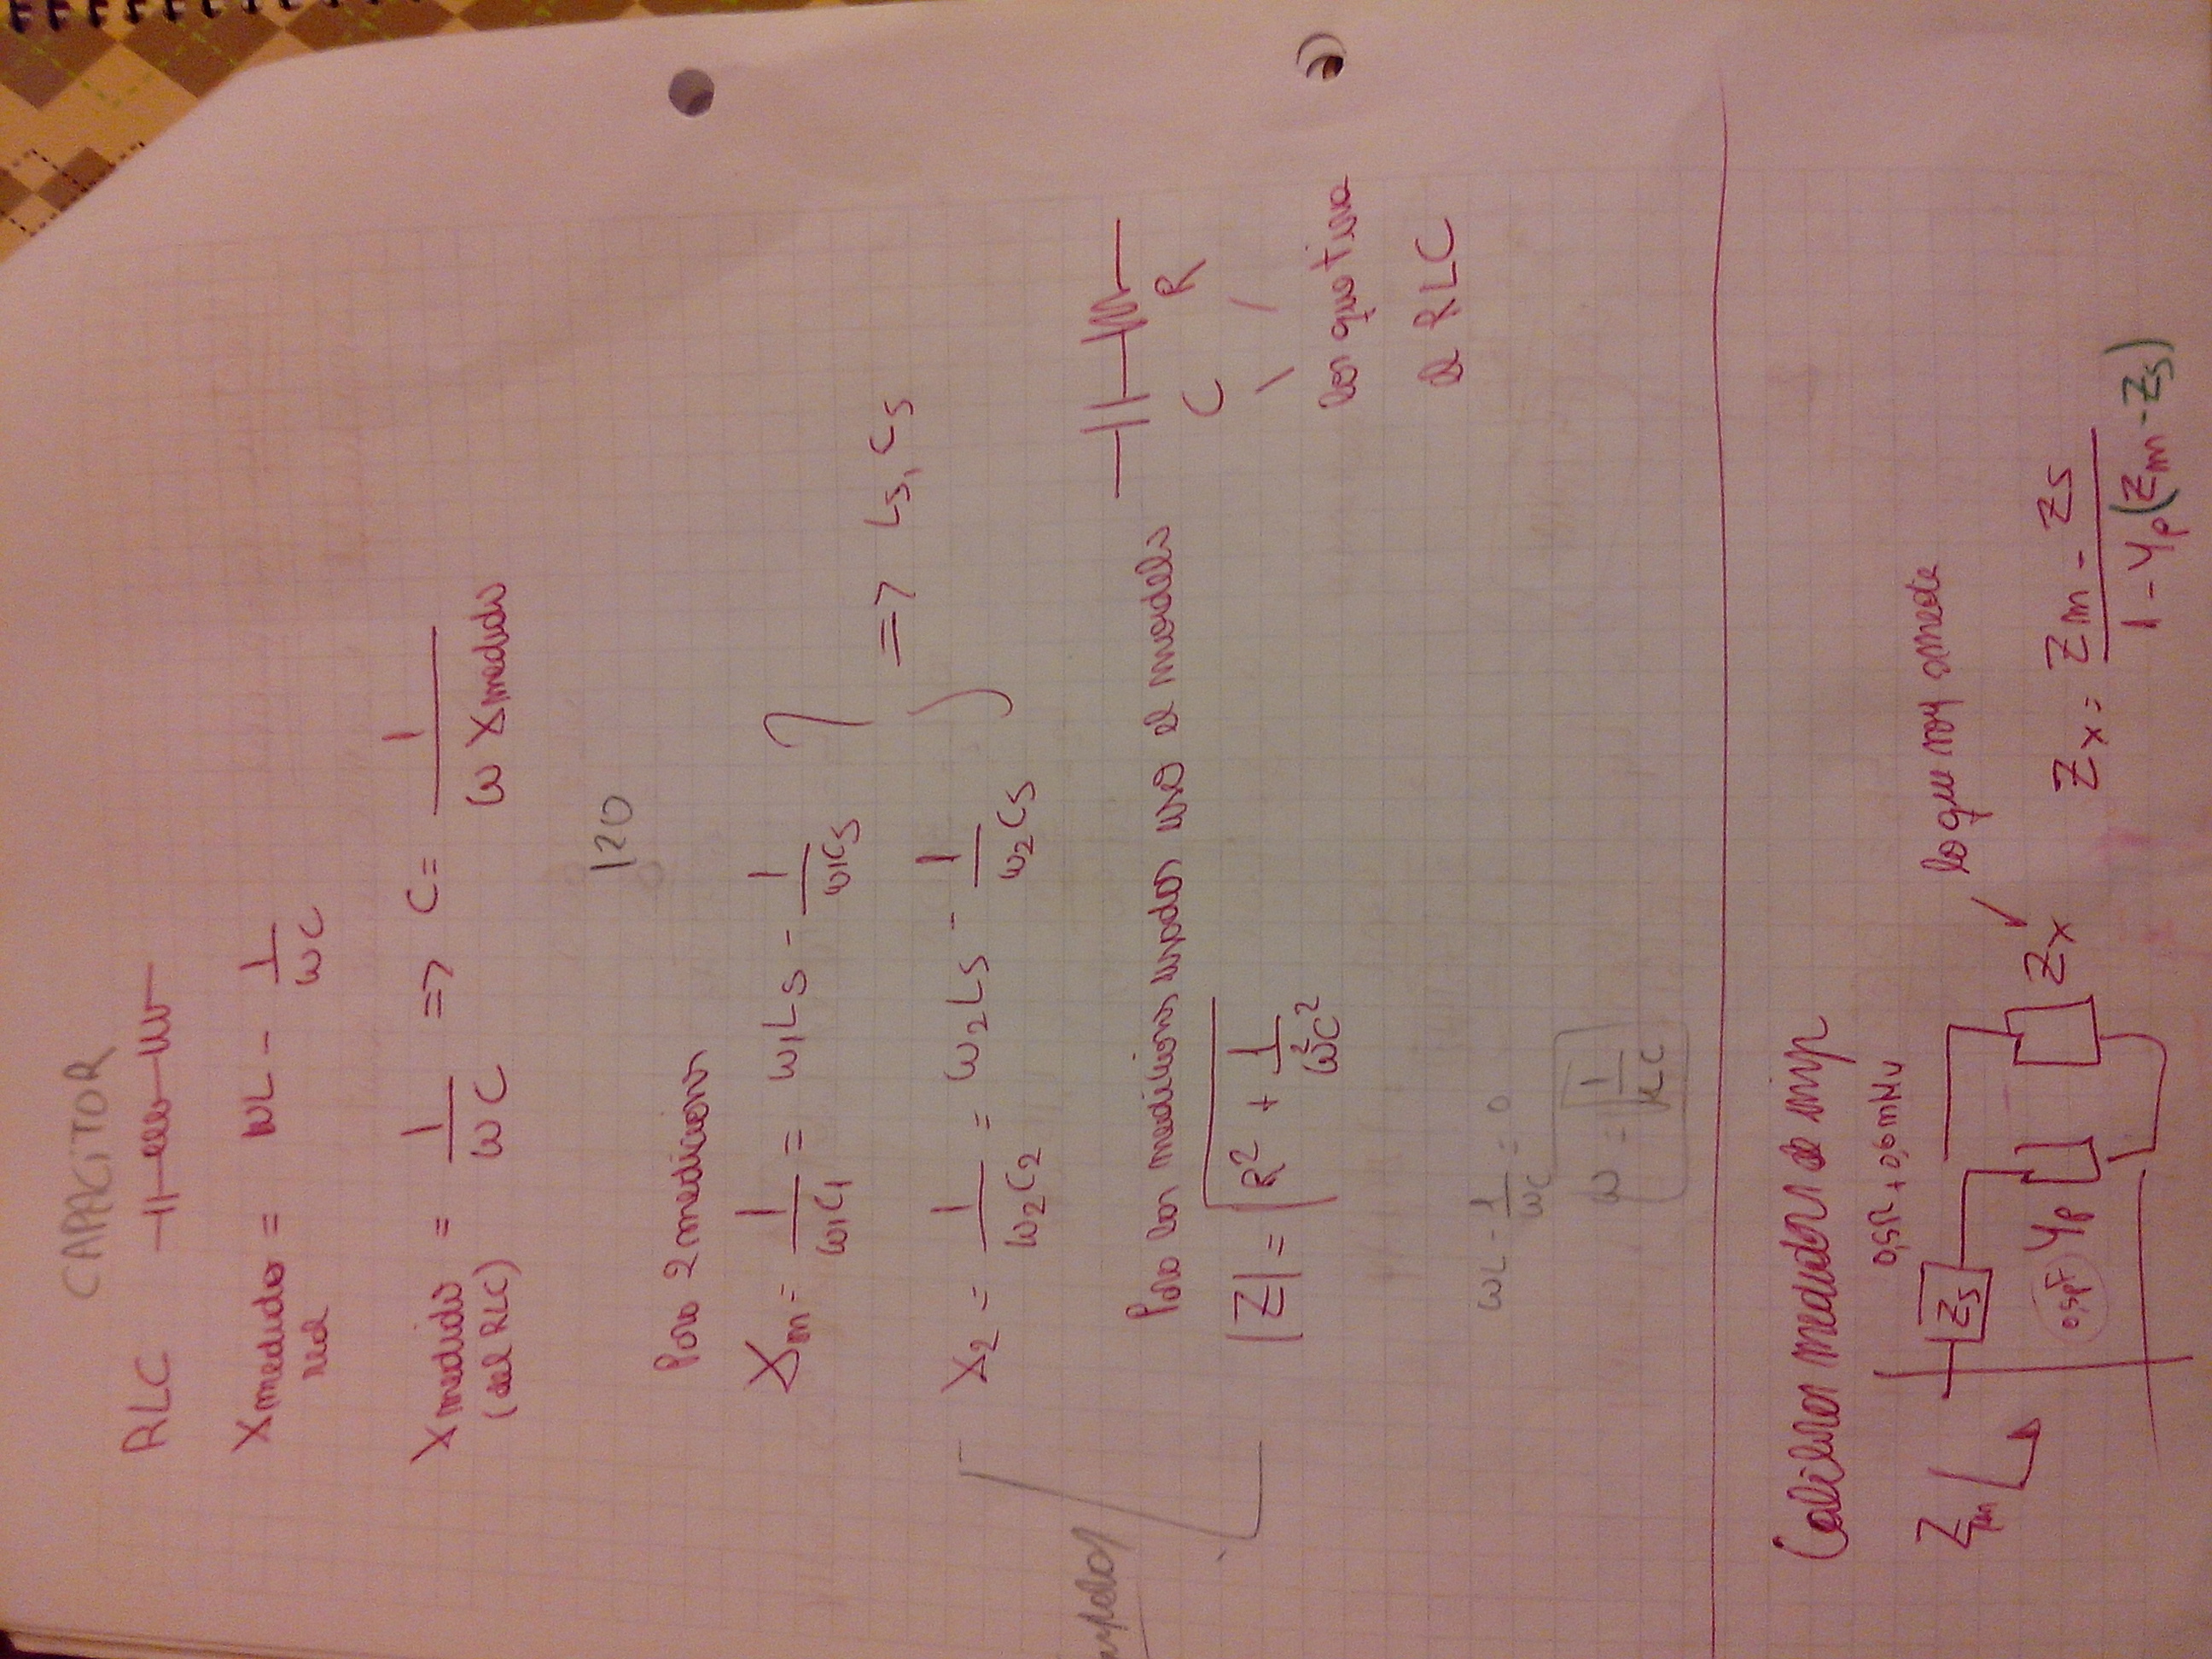 CAPACITOR
RLC
Xmedido = ωL - 1/ωC
red
Xmedido = 1/ωC => C = 1/ω Xmedido
(del RLC)
120
Para 2 mediciones
Xm = 1/ω1C1 = ω1Ls - 1/ω1Cs
=> Ls, Cs
X2 = 1/ω2C2 = ω2Ls - 1/ω2Cs
Para las mediciones usadas uso el modelo
C R
|Z| = √(R² + 1/ω²C²)
los que tira
el RLC
ωL - 1/ωC = 0
ω = √(1/LC)
Calibrar medidores de imp
Zm
Zs
0,5pF Yp
Zx
lo que voy a medir
Zx = Zm - Zs / 1 - Yp(Zm - Zs)